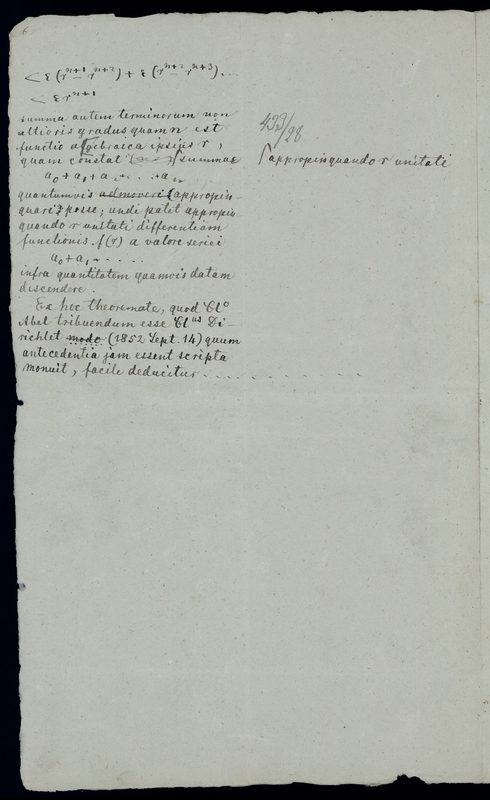 6
< ε(r^{n+1} - r^{n+2}) + ε(r^{n+2} - r^{n+3}) ...
< ε r^{n+1}
summa autem terminorum non
altioris gradus quam n est
functio algebraica ipsius r,
quam constat summae
a₀ + a₁ + a₂ + . . : + aₙ
quantumvis admoveri appropin-
quari posse; unde patet appropin
quando r unitati differentiam
functionis f(r) a valore seriei
a₀ + a₁ + . . . . .
infra quantitatem quamvis datam
descendere.
Ex hoc theoremate, quod Cl⁰
Abel tribuendum esse Cl^{us} Di-
richlet modo (1852 Sept. 14) quum
antecedentia jam essent scripta
monuit, facile deducitur . . . . . . . . . . .
433/28
appropinquando r unitati